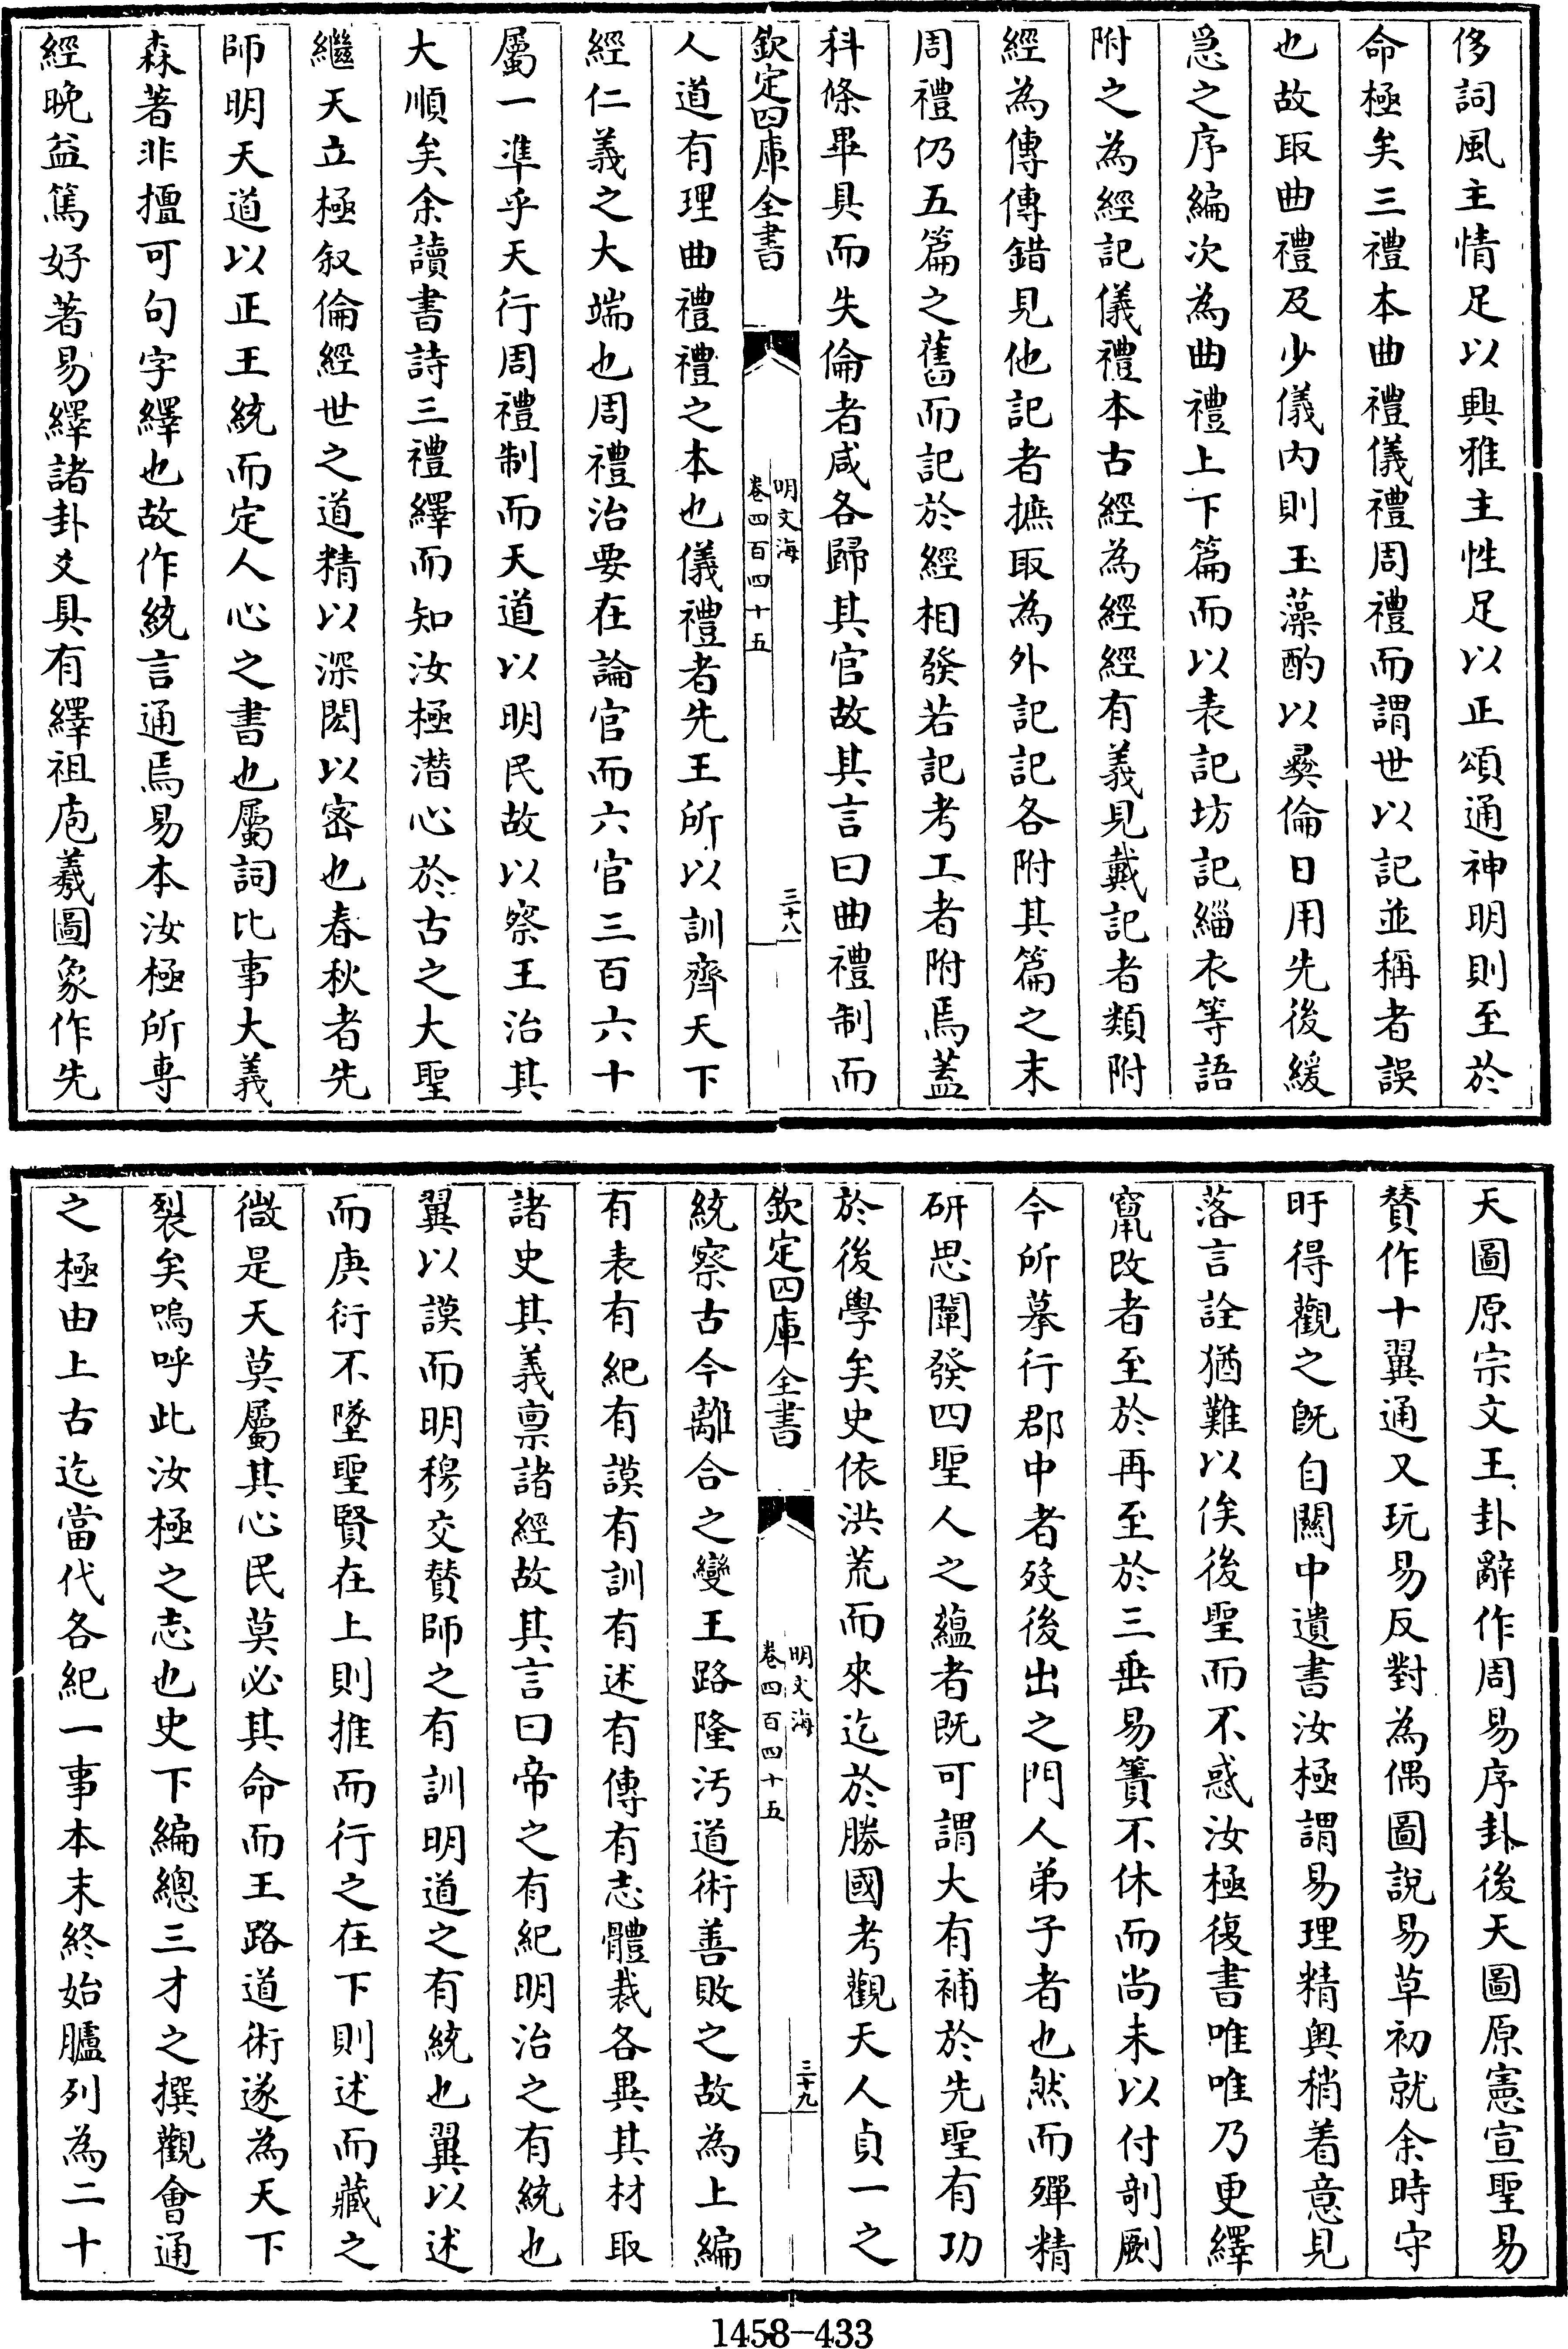 侈詞風主情足以興雅主性足以正頌通神明則至於
命極矣三禮本曲禮儀禮周禮而謂世以記並稱者誤
也故取曲禮及少儀内則玉藻酌以彜倫日用先後緩
急之序編次為曲禮上下篇而以表記坊記緇衣等語
附之為經記儀禮本古經為經經有義見戴記者類附
經為傳傳錯見他記者摭取為外記記各附其篇之末
周禮仍五篇之舊而記於經相發若記考工者附焉蓋
科條畢具而失倫者咸各歸其官故其言曰曲禮制而
欽定四庫全書
明文海
卷四百四十五
三十八
人道有理曲禮禮之本也儀禮者先王所以訓齊天下
經仁義之大端也周禮治要在論官而六官三百六十
屬一準乎天行周禮制而天道以明民故以察王治其
大順矣余讀書詩三禮繹而知汝極潛心於古之大聖
繼天立極叙倫經世之道精以深閎以密也春秋者先
師明天道以正王統而定人心之書也屬詞比事大義
森著非擅可句字繹也故作統言通焉易本汝極所専
經晚益篤好著易繹諸卦爻具有繹祖庖羲圖象作先
天圖原宗文王卦辭作周易序卦後天圖原憲宣聖易
賛作十翼通又玩易反對為偶圖說易草初就余時守
盱得觀之既自關中遺書汝極謂易理精奥稍着意見
落言詮猶難以俟後聖而不惑汝極復書唯唯乃更繹
竄改者至於再至於三垂易簀不休而尚未以付剞劂
今所摹行郡中者歿後出之門人弟子者也然而殫精
研思闡發四聖人之蘊者既可謂大有補於先聖有功
於後學矣史依洪荒而來迄於勝國考觀天人貞一之
欽定四庫全書
明文海
卷四百四十五
三十九
統察古今離合之變王路隆汚道術善敗之故為上編
有表有紀有謨有訓有述有傳有志體裁各異其材取
諸史其義禀諸經故其言曰帝之有紀明治之有統也
翼以謨而明穆交賛師之有訓明道之有統也翼以述
而庚衍不墜聖賢在上則推而行之在下則述而藏之
微是天莫屬其心民莫必其命而王路道術遂為天下
裂矣嗚呼此汝極之志也史下編總三才之撰觀會通
之極由上古迄當代各紀一事本末終始臚列為二十
1458-433